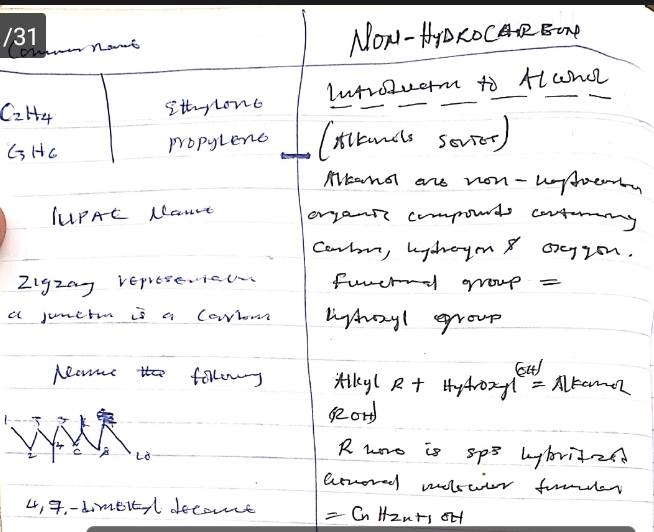 /31
Common name
C2H4 Ethylene
C3H6 Propylene
IUPAC Name
Zigzag representation
a junction is a Carbon
Name the following
1 2 4 6 8 10
4,7,-dimethyl decane
NON-HYDROCARBON
Introduction to Alcohol
(Alkanols series)
Alkanol are non-hydrocarbon
organic compounds containing
Carbon, hydrogen & oxygen.
Functional group =
Hydroxyl group
Alkyl R + Hydroxyl (OH) = Alkanol
ROH
R here is sp3 hybridized
General molecular formular
= Cn H2n+1 OH